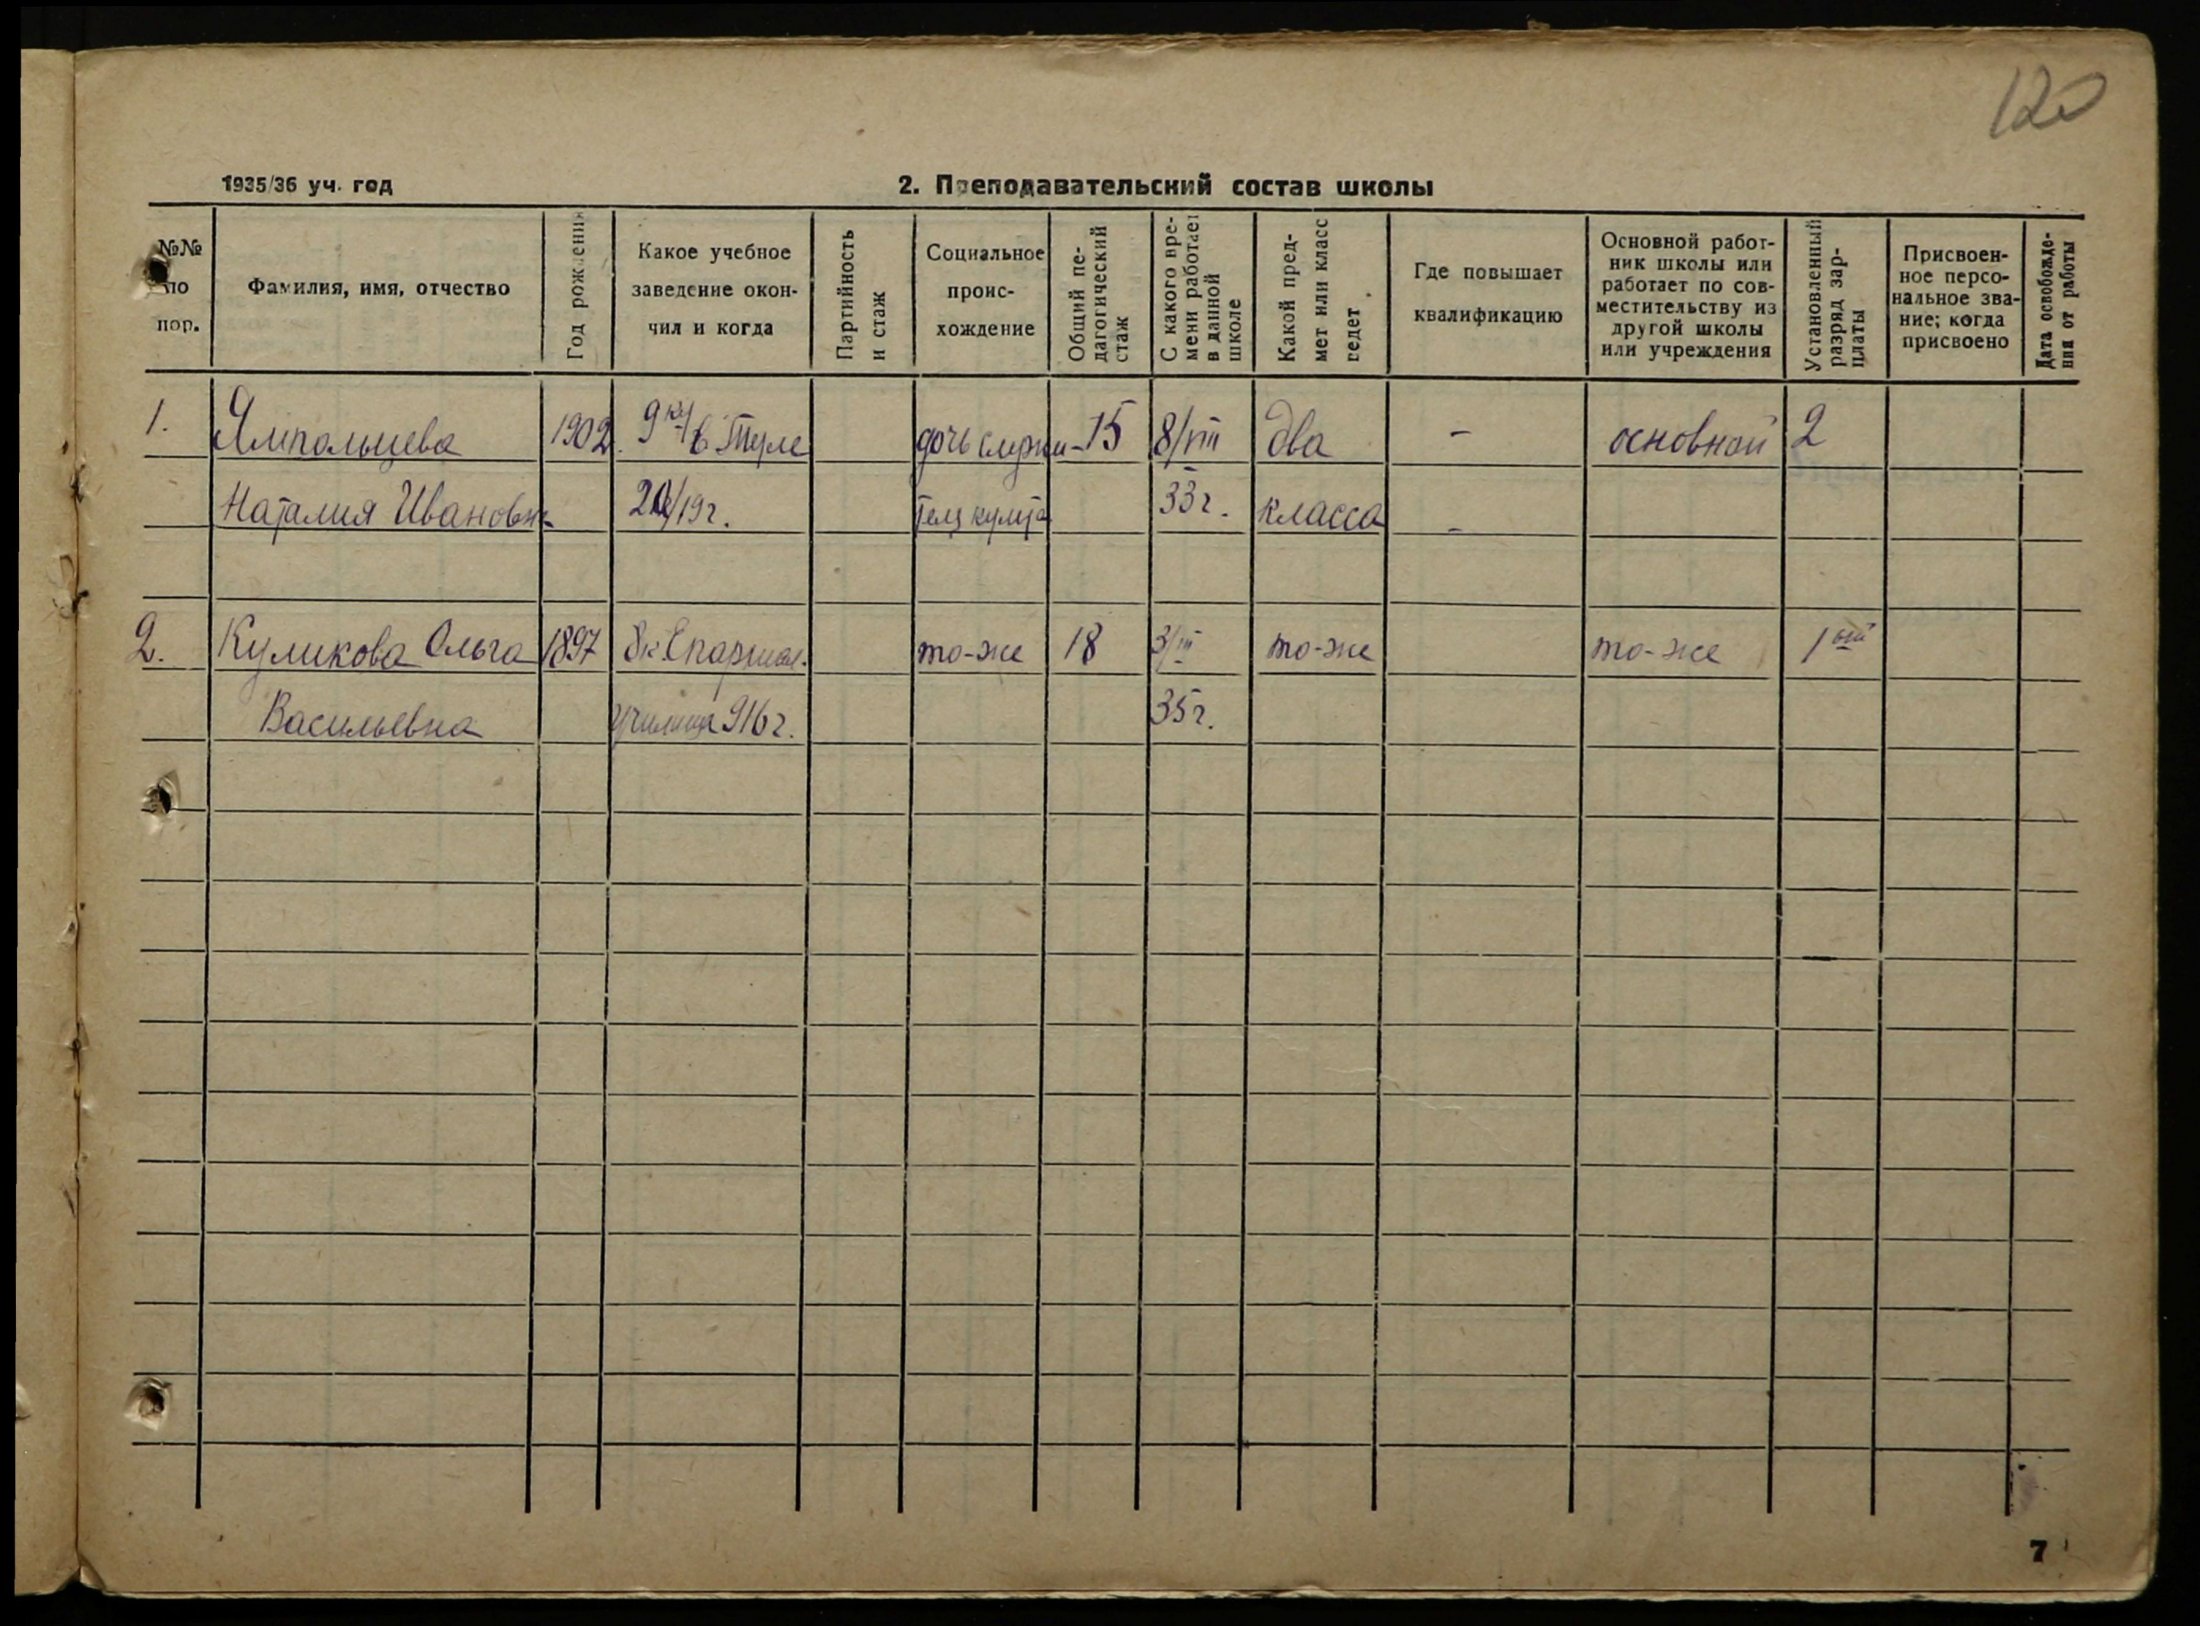 120
1935/36 уч. год
2. Преподавательский состав школы
№№ по пор.
Фамилия, имя, отчество
Год рождения
Какое учебное заведение окончил и когда
Партийность и стаж
Социальное происхождение
Общий педагогический стаж
С какого времени работает в данной школе
Какой предмет или класс ведет
Где повышает квалификацию
Основной работник школы или работает по совместительству из другой школы или учреждения
Установленный разряд зарплаты
Присвоенное персональное звание; когда присвоено
Дата освобождения от работы
1. Ямпольцева 1902. 9 кл/ в Туле дочь служи- 15 8/VIII два - основной 2
Наталия Ивановна /19г. теля культа 33г. класса -
2. Куликова Ольга 1897 8к Епархиал. то-же 18 3/III то-же то-же 1ый
Васильевна училища 916г. 35г.
7